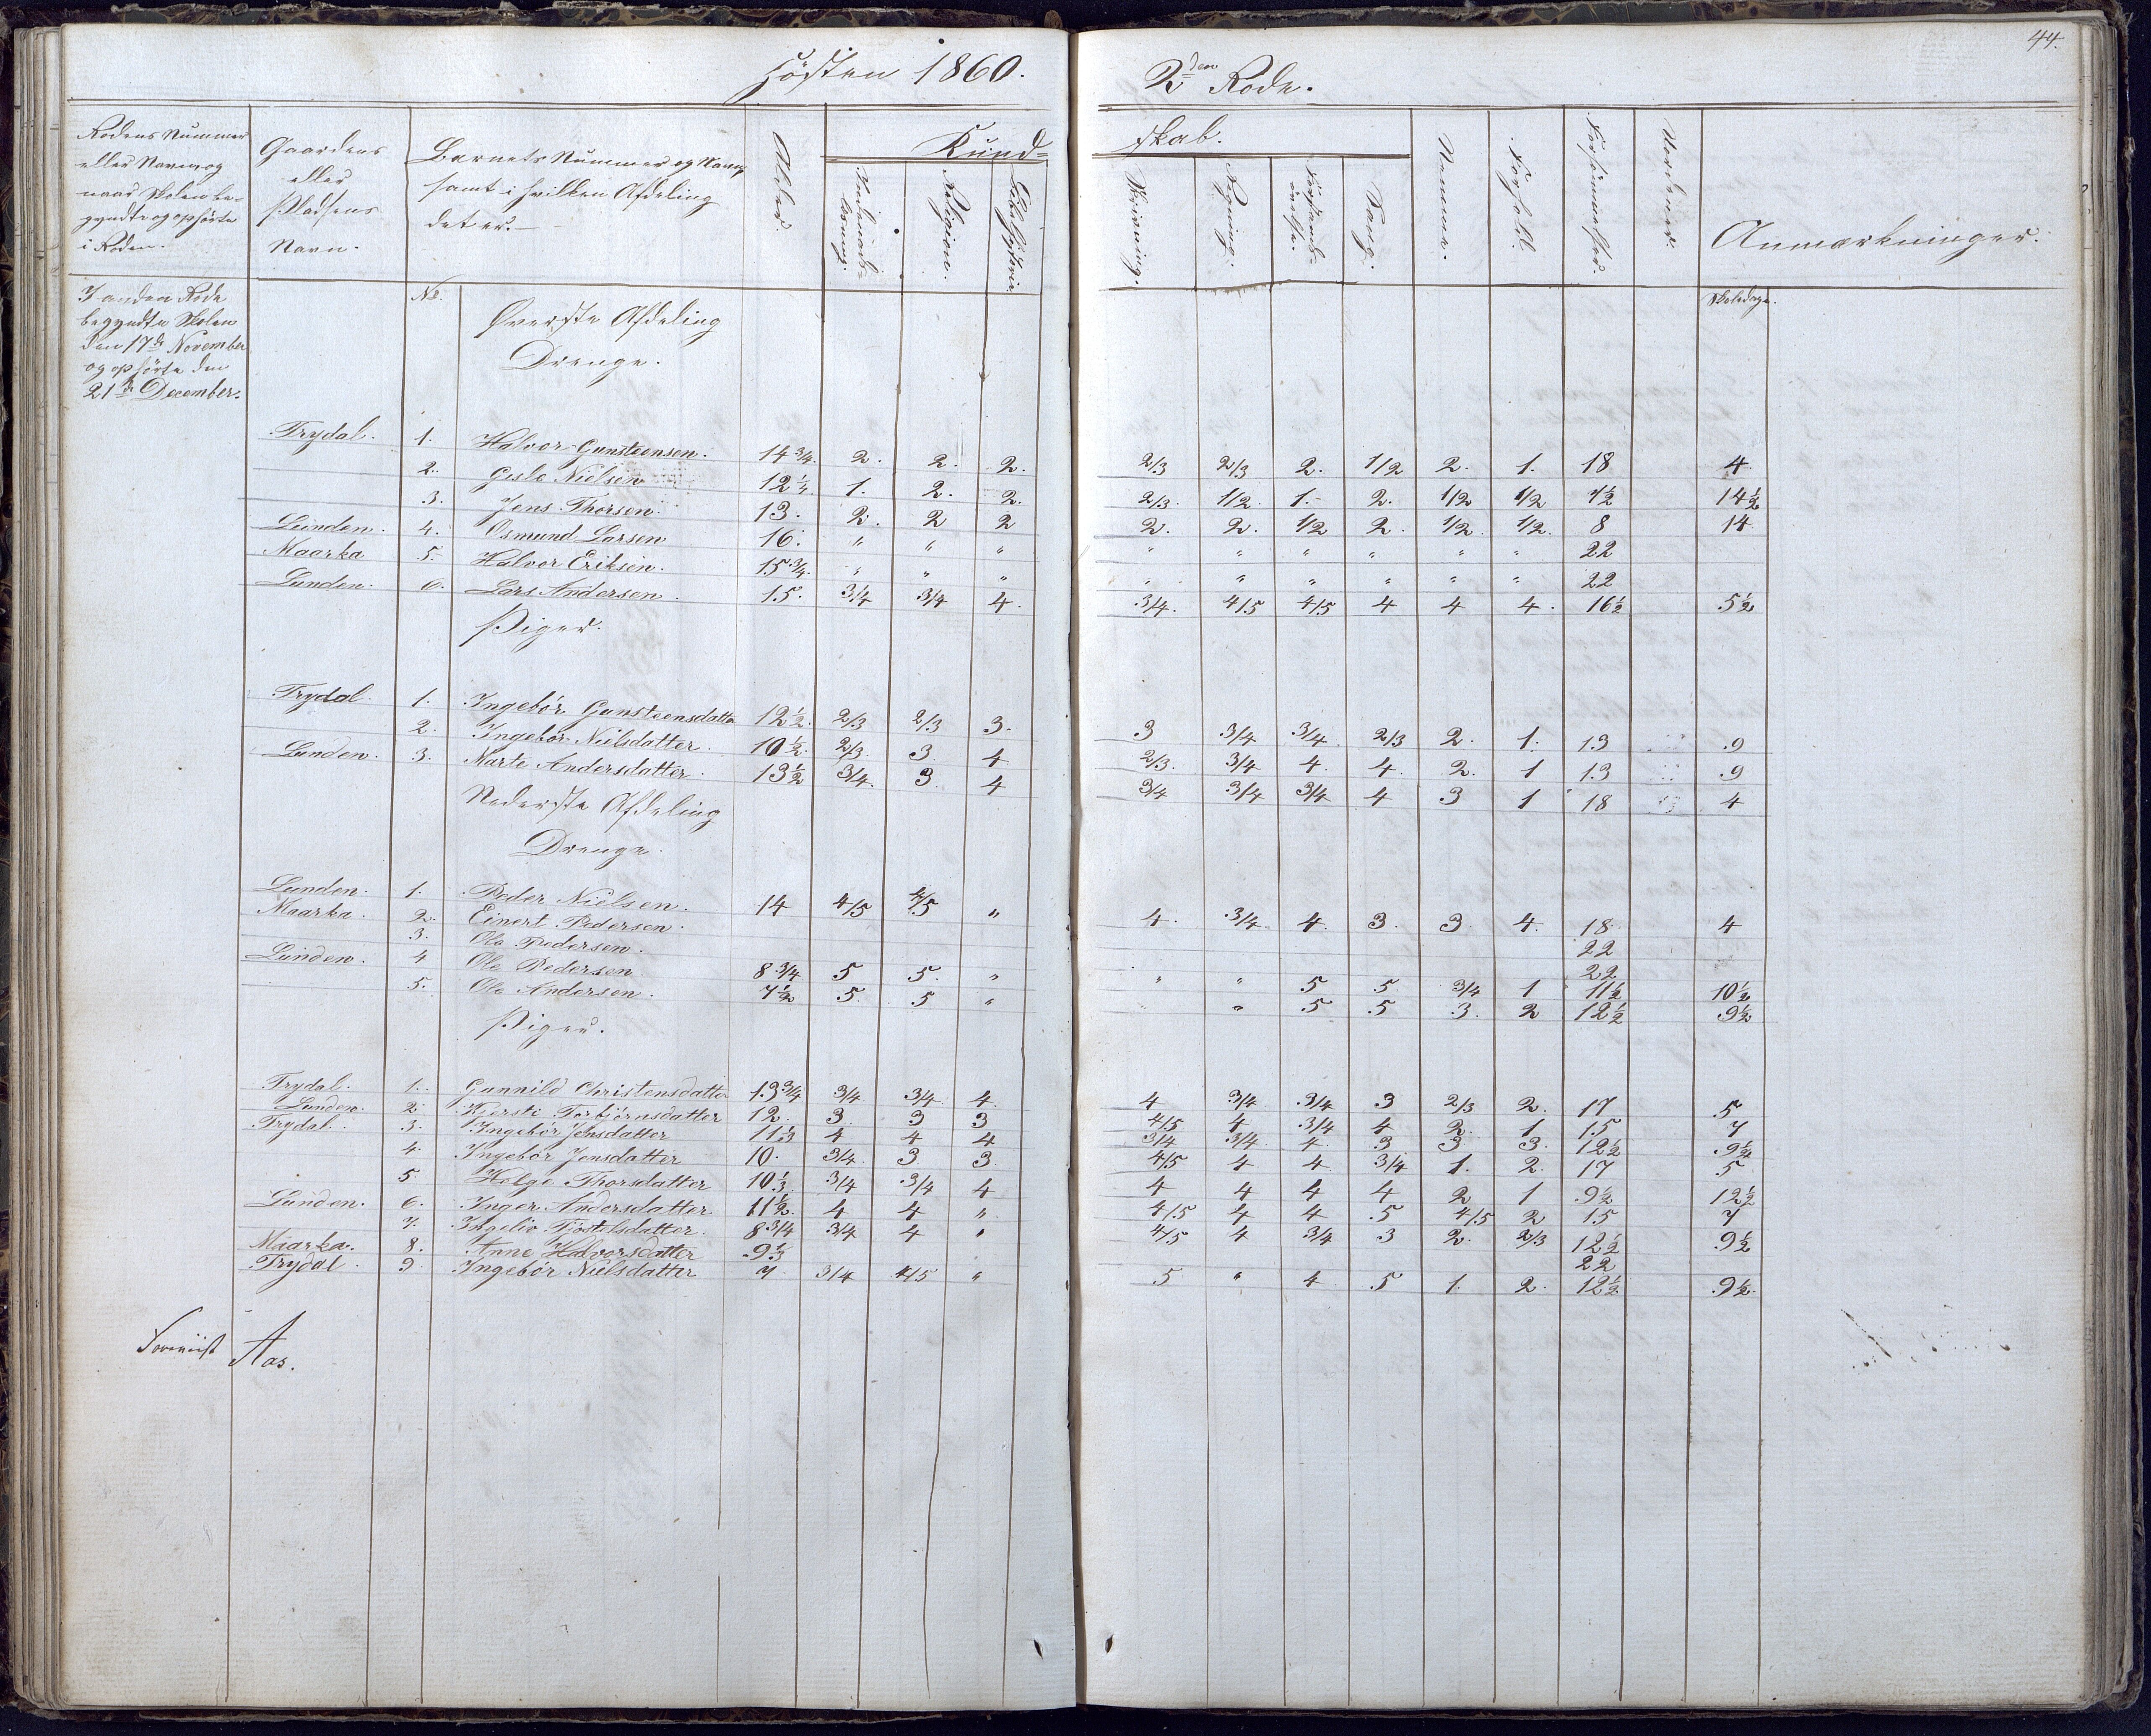 Høsten 1860.
2den Rode.
44.
Rodens Nummer
eller Navn og
naar Skolen be-
gyndte og ophørte
i Roden.
Gaardens
eller
Pladsens
Navn.
Barnets Nummer og Navn,
samt i hvilken Afdeling
det er.
Alder.
Kund-
skab.
Religion.
Skrivning.
Regning.
Sang.
Nemme.
Forhold.
Forsømmelser.
Anmærkninger.
I anden Rode
begyndte Skolen
den 17de November
og ophørte den
21de December.
No. Øverste Afdeling Skoledage.
Drenge.
Trydal. 1. Halvor Gunsteensen. 14 3/4. 2. 2. 2. 2/3 2/3 2. 1/2 2. 1. 18 4
2. Gisle Nielsen 12 1/4. 1. 2. 2. 2/3. 1/2. 1. 2. 1/2 1/2 7 1/2 14 1/2
3. Jens Thorsen. 13. 2. 2 2 2. 2. 1/2 2. 1/2. 1/2. 8 14
Lunden. 4. Osmund Larsen 16. " " " " " " " " " 22
Maarka 5. Halvor Eriksen. 15 3/4. " " " " " " " " " 22
Lunden. 6. Lars Andersen. 15. 3/4 3/4 4. 3/4. 4/5 4/5 4 4 4. 16 1/2 5 1/2
Piger.
Trydal 1. Ingebør Gunsteensdatter 12 1/2. 2/3 2/3 3. 3 3/4 3/4. 2/3 2. 1. 13 9
2. Ingebør Nielsdatter. 10 1/2. 2/3. 3. 4 2/3. 3/4 4. 4. 2. 1 13 9
Lunden. 3. Marte Andersdatter. 13 1/2 3/4. 3. 4 3/4 3/4 3/4 4 3 1 18 4
Nederste Afdeling
Drenge.
Lunden. 1. Peder Nielsen. 14 4/5 4/5 " 4. 3/4. 4. 3. 3 4. 18. 4
Maarka. 2. Einert Pedersen. 22
3. Ole Pedersen. 22
Lunden. 4 Ole Pedersen. 8 3/4 5 5. " " " 5 5. 3/4 1 11 1/2 10 1/2
5. Ole Andersen. 7 1/2 5. 5 " " 5 5 3. 2 12 1/2 9 1/2
Piger.
Trydal. 1. Gunnild Christensdatter 13 3/4 3/4 3/4. 4. 4 3/4 3/4 3 2/3 2. 17 5
Lunden. 2. Kjersti Torbjørnsdatter 12. 3 3 3 4/5 4 3/4 4 2. 1 15 7
Trydal. 3. Ingebør Jensdatter 11 1/3 4 4 4 3/4 3/4 4. 3 3 3. 12 1/2 9 1/2
4. Ingebør Jensdatter 10. 3/4. 3. 3. 4/5 4 4 3/4 1. 2. 17 5
5. Helge Thorsdatter 10 1/3 3/4 3/4 4 4 4 4 4 2 1 9 1/2 12 1/2
Lunden. 6. Inger Andersdatter. 11 1/2. 4 4 " 4/5 4 4 5 4/5 2 15 7
7. Ingelio Tjøstelsdatter. 8 3/4 3/4 4 " 4/5 4 3/4 3 2. 2/3 12 1/2 9 1/2
Maarka. 8. Anne Halvorsdatter 9 1/3 22
Trydal. 9. Ingebør Nielsdatter 7 3/4 4/5 " 5 " 4 5 1. 2. 12 1/2 9 1/2.
Foreviist Aas.